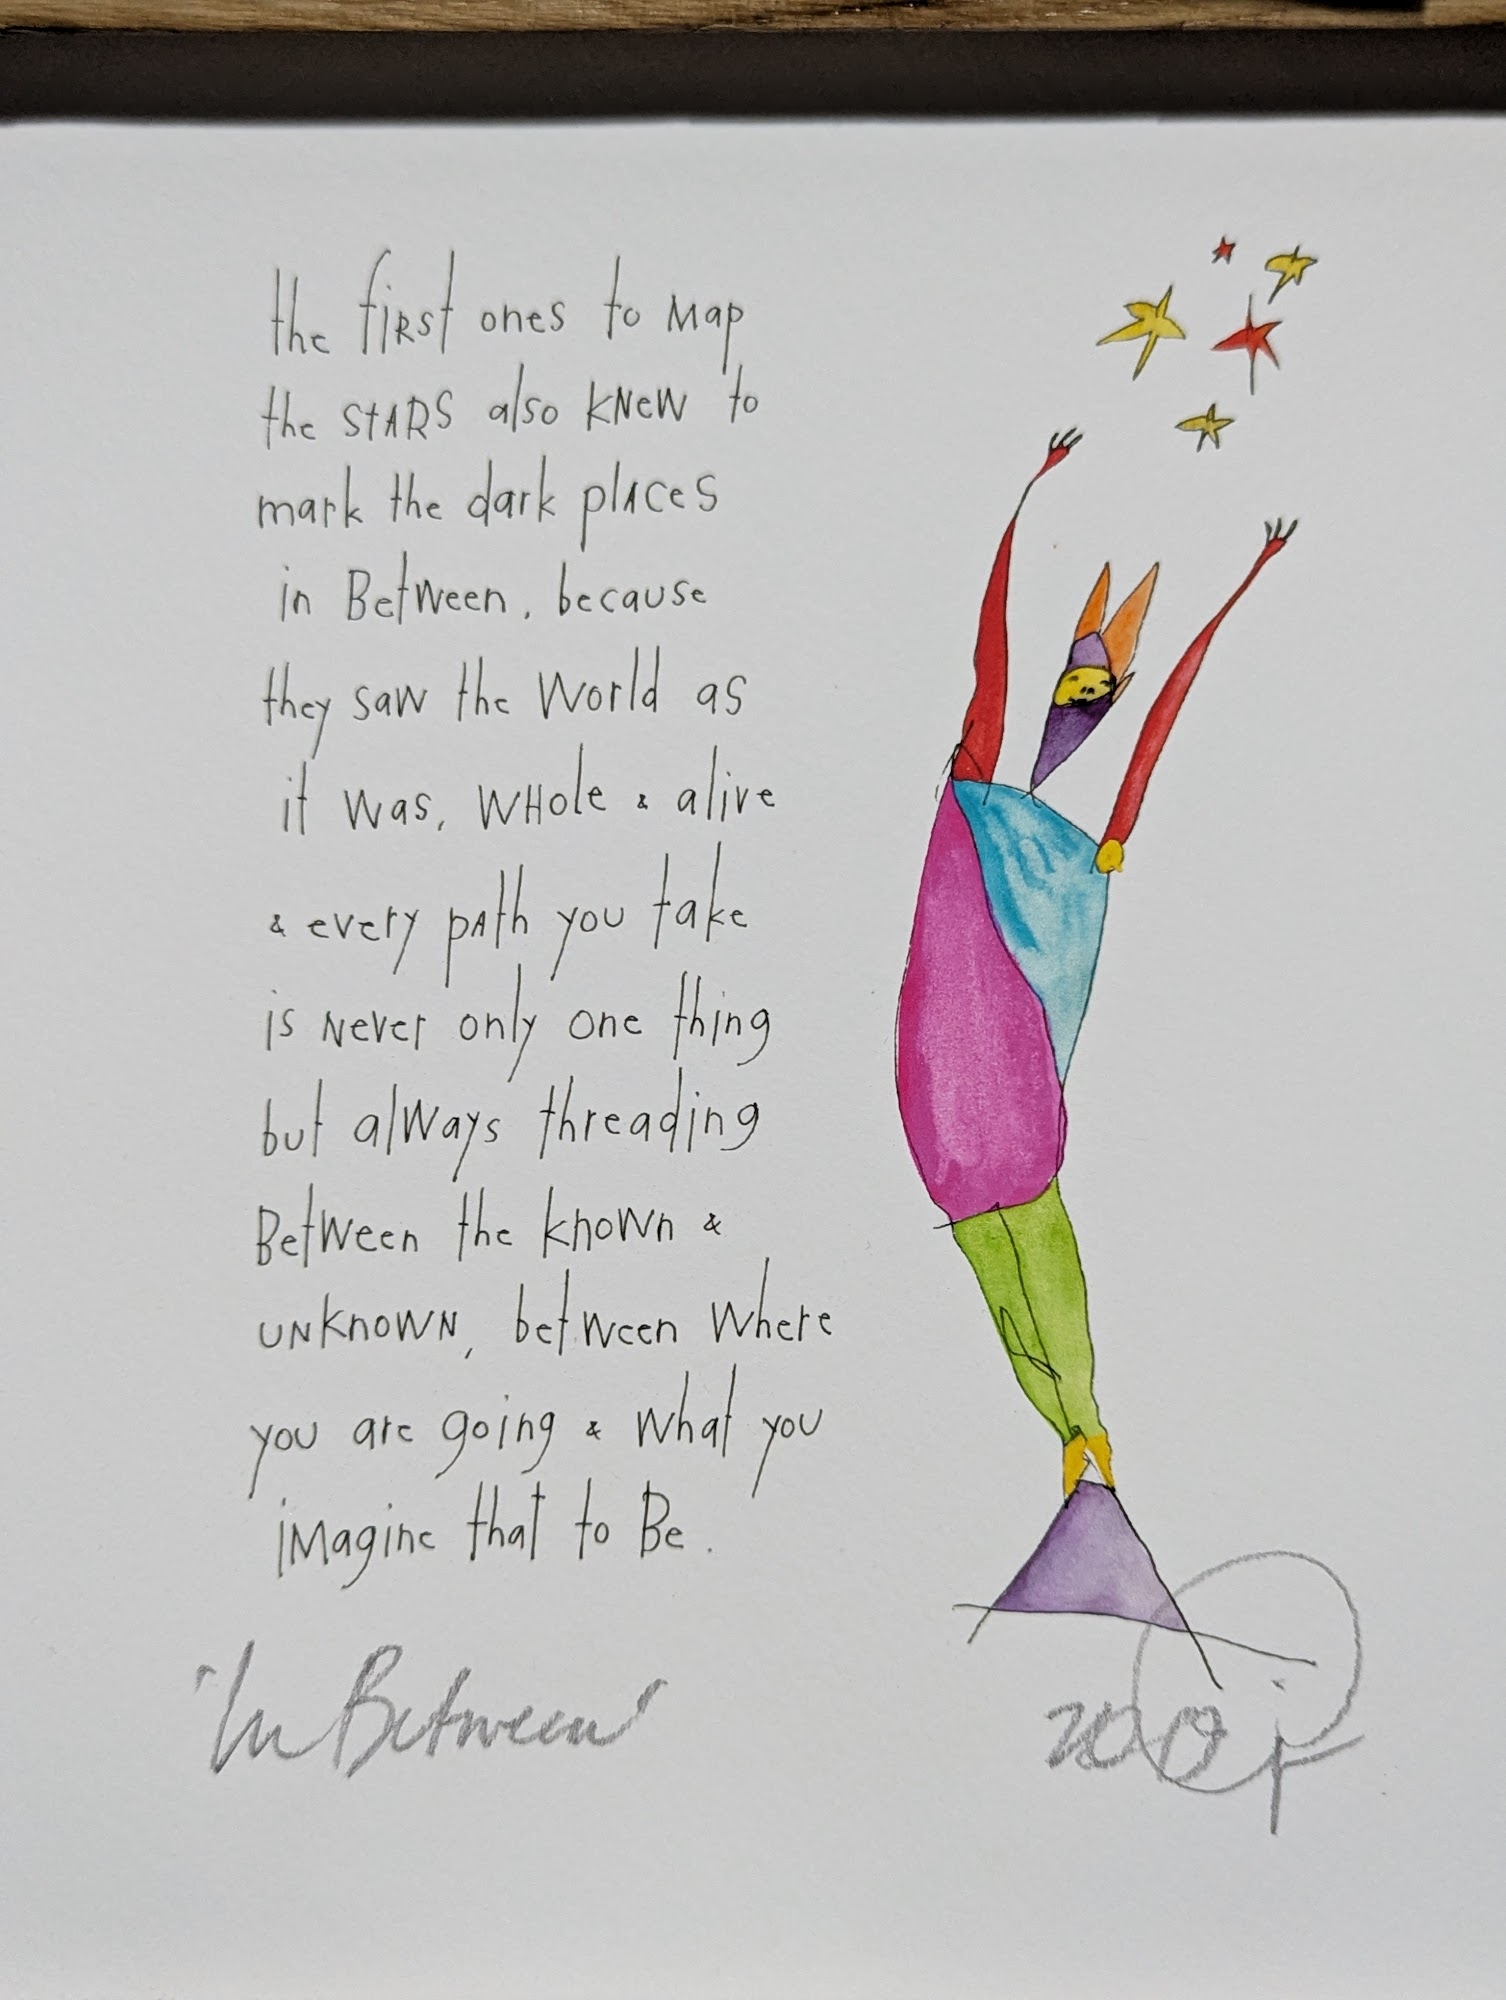 the first ones to map
the stars also knew to
mark the dark places
in Between, because
they saw the world as
it was, whole & alive
& every path you take
is never only one thing
but always threading
Between the known &
unknown, between where
you are going & what you
imagine that to Be.
'In Between'